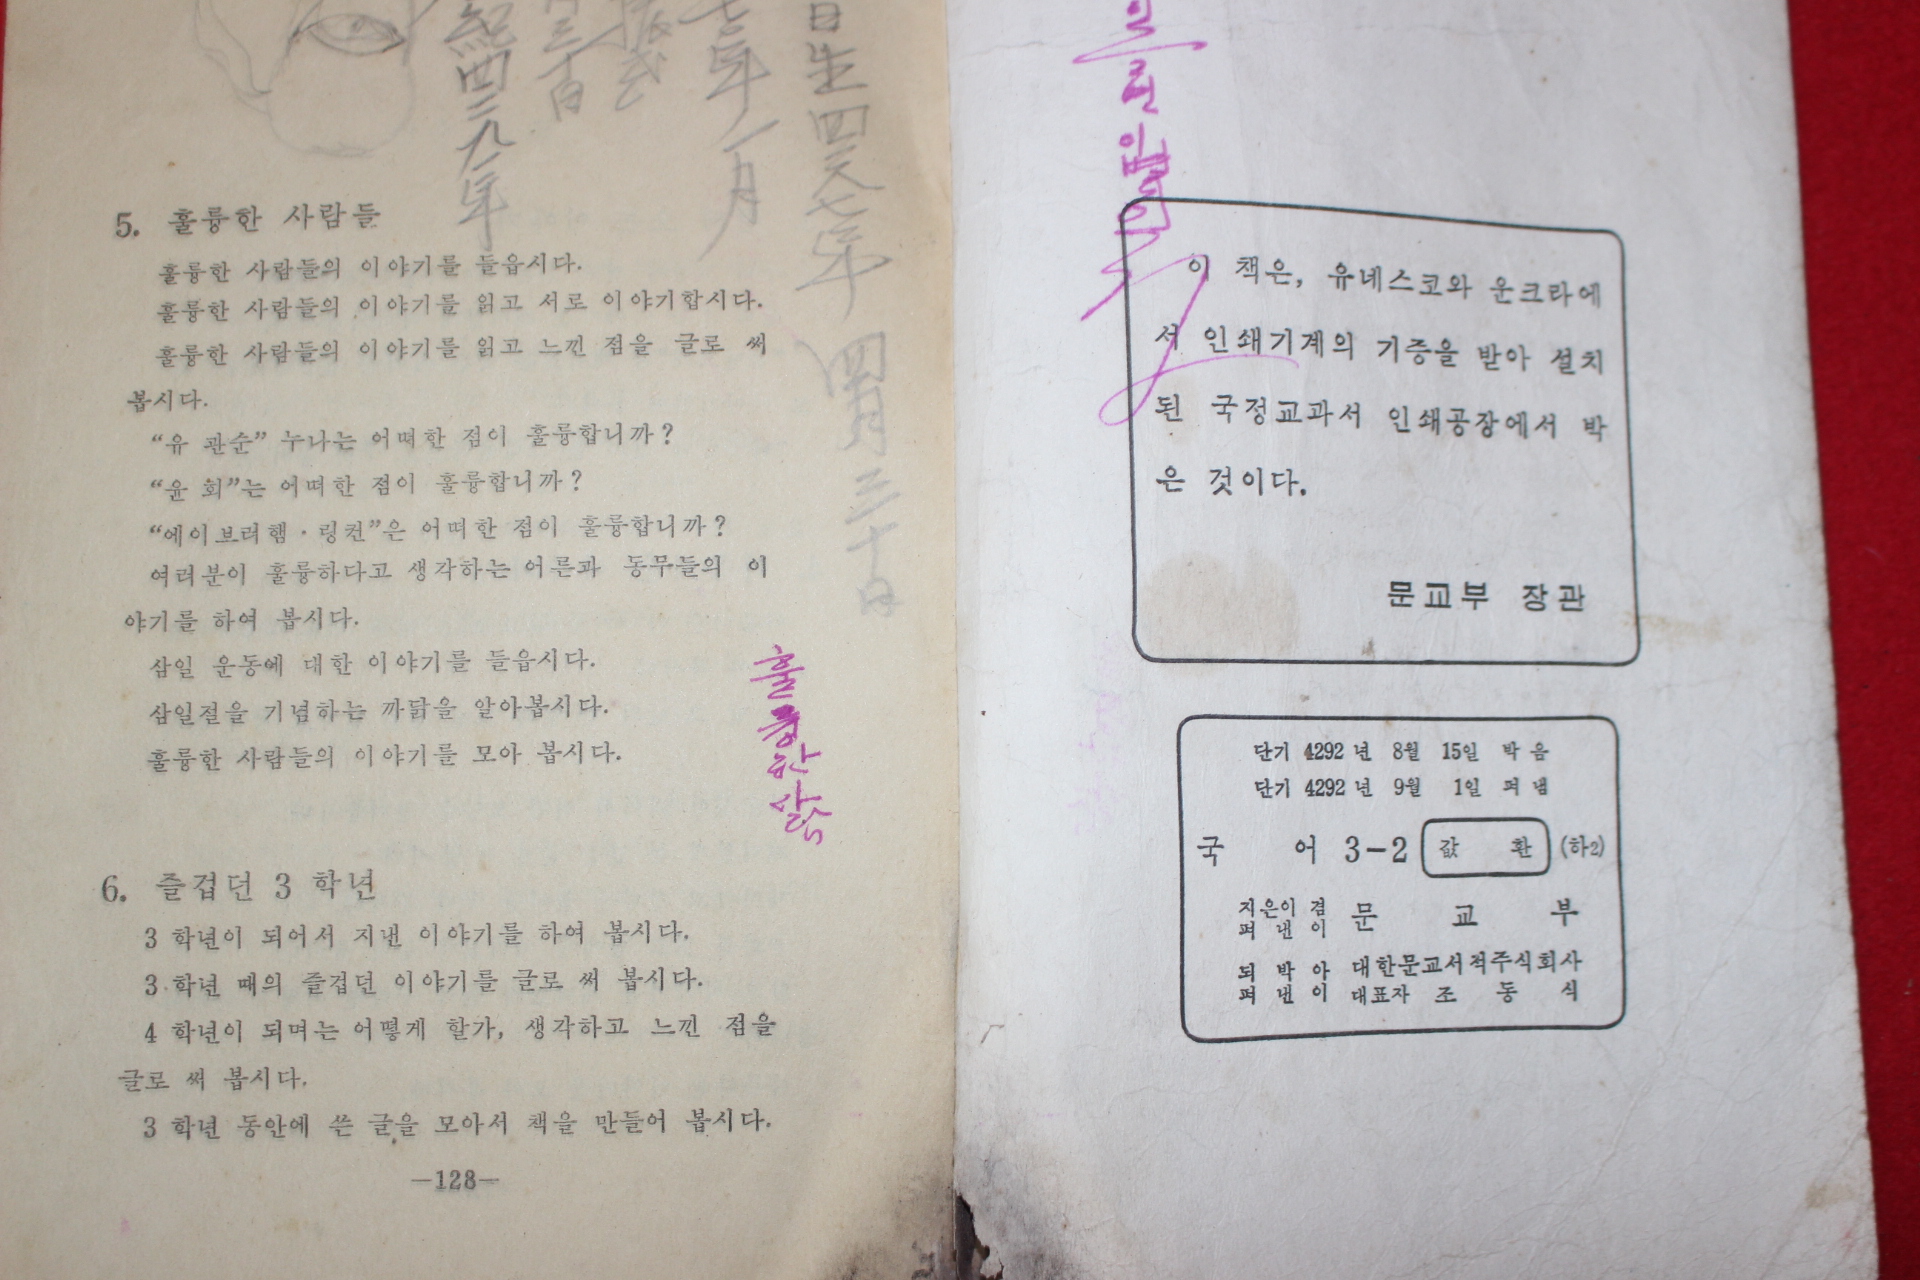 5. 훌륭한 사람들
훌륭한 사람들의 이야기를 들읍시다.
훌륭한 사람들의 이야기를 읽고 서로 이야기합시다.
훌륭한 사람들의 이야기를 읽고 느낀 점을 글로 써
봅시다.
“유 관순” 누나는 어떠한 점이 훌륭합니까?
“윤 회”는 어떠한 점이 훌륭합니까?
“에이브러햄·링컨”은 어떠한 점이 훌륭합니까?
여러분이 훌륭하다고 생각하는 어른과 동무들의 이
야기를 하여 봅시다.
삼일 운동에 대한 이야기를 들읍시다.
삼일절을 기념하는 까닭을 알아봅시다.
훌륭한 사람들의 이야기를 모아 봅시다.
6. 즐겁던 3 학년
3 학년이 되어서 지낸 이야기를 하여 봅시다.
3 학년 때의 즐겁던 이야기를 글로 써 봅시다.
4 학년이 되며는 어떻게 할가, 생각하고 느낀 점을
글로 써 봅시다.
3 학년 동안에 쓴 글을 모아서 책을 만들어 봅시다.
—128—
紀四二九一年
三十日
年一月
日生四二八七年 四月三十日
훌륭한
이 책은, 유네스코와 운크라에
서 인쇄기계의 기증을 받아 설치
된 국정교과서 인쇄공장에서 박
은 것이다.
문교부 장관
단기 4292년 8월 15일 박음
단기 4292년 9월 1일 펴냄
국 어 3-2 값 환 (하2)
지은이 겸 펴낸이 문 교 부
되박아 펴낸이 대한문교서적주식회사
대표자 조 동 식